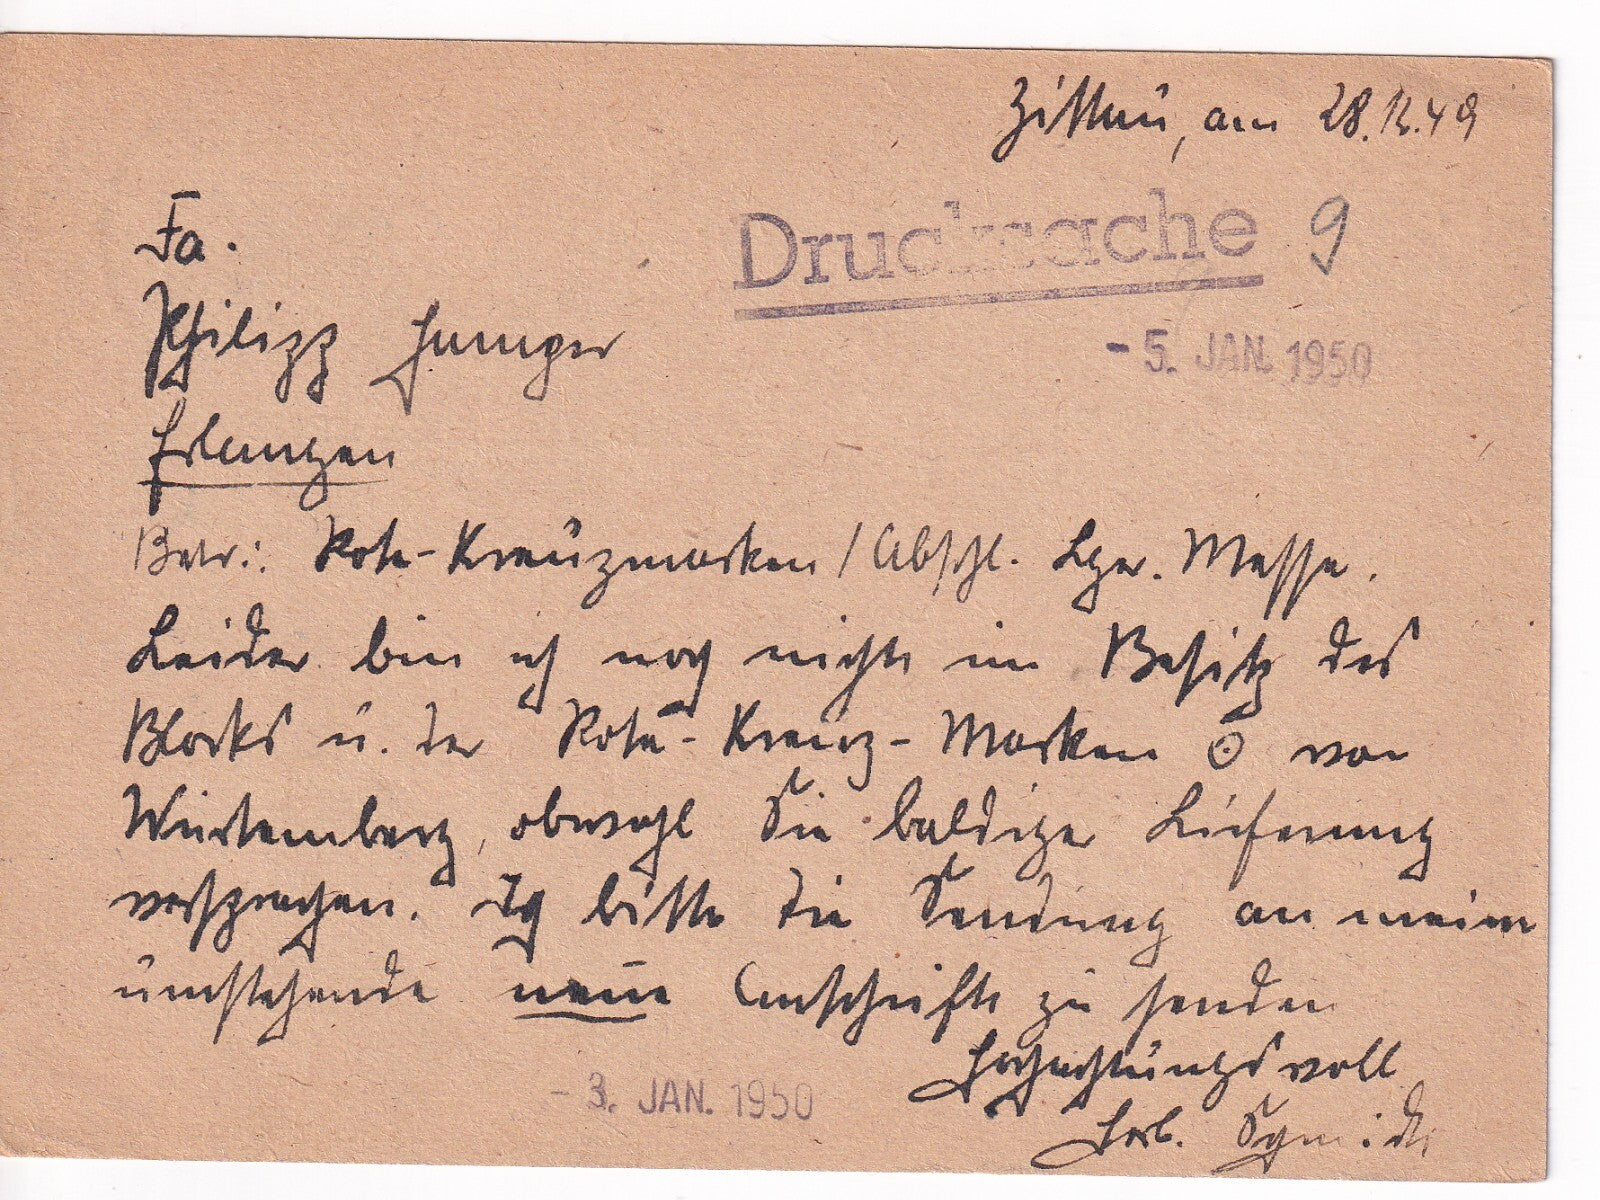 Zittau, am 28.12.49
Drucksache 9
Fa.
- 5. JAN. 1950
Philipp Junger
Erlangen
Betr.: Rote-Kreuzmarken / Abschl. Lpz. Messe.
Leider bin ich noch nicht im Besitz des
Blocks u. der Rote-Kreuz-Marken ʘ von
Württemberg, obwohl Sie baldige Lieferung
versprachen. Ich bitte die Sendung an meine
umstehende neue Anschrift zu senden
Hochachtungsvoll
- 3. JAN. 1950
Herb. Schmidt